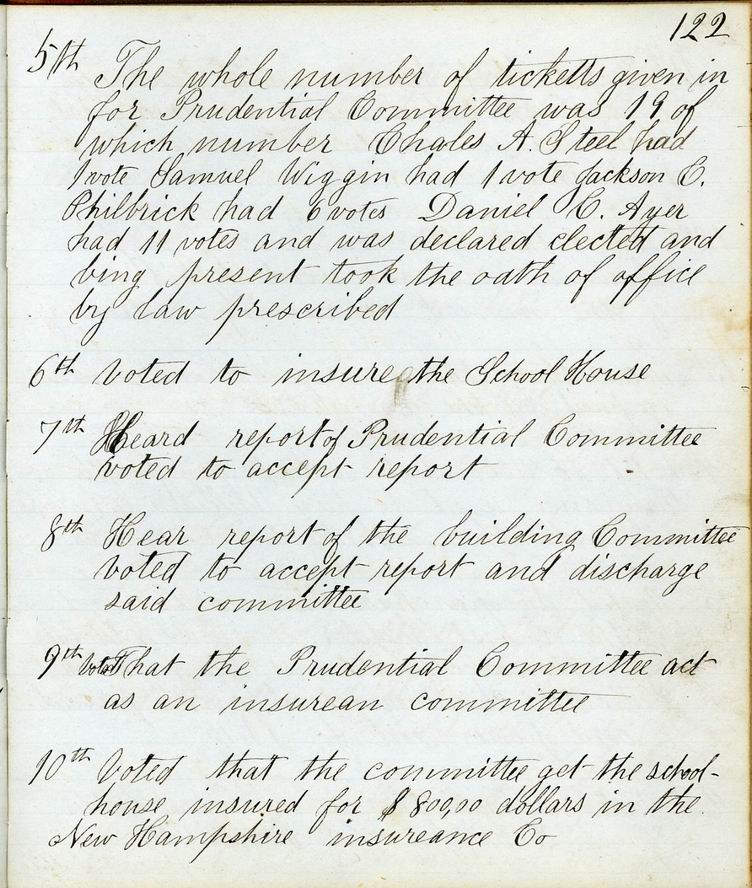 122
5th The whole number of ticketts given in
for Prudential Committee was 19 of
which number Chales A. Steel had
1 vote Samuel Wiggin had 1 vote Jackson C.
Philbrick had 6 votes Daniel C. Ayer
had 11 votes and was declared elected and
bing present took the oath of office
by law prescribed
6th Voted to insure the School House
7th Heard report of Prudential Committee
voted to accept report
8th Hear report of the building Committee
voted to accept report and discharge
said committee
9th Voted That the Prudential Committee act
as an insurean committee
10th Voted that the committee get the school-
house insured for $800,00 dollars in the
New Hampshire insureance Co